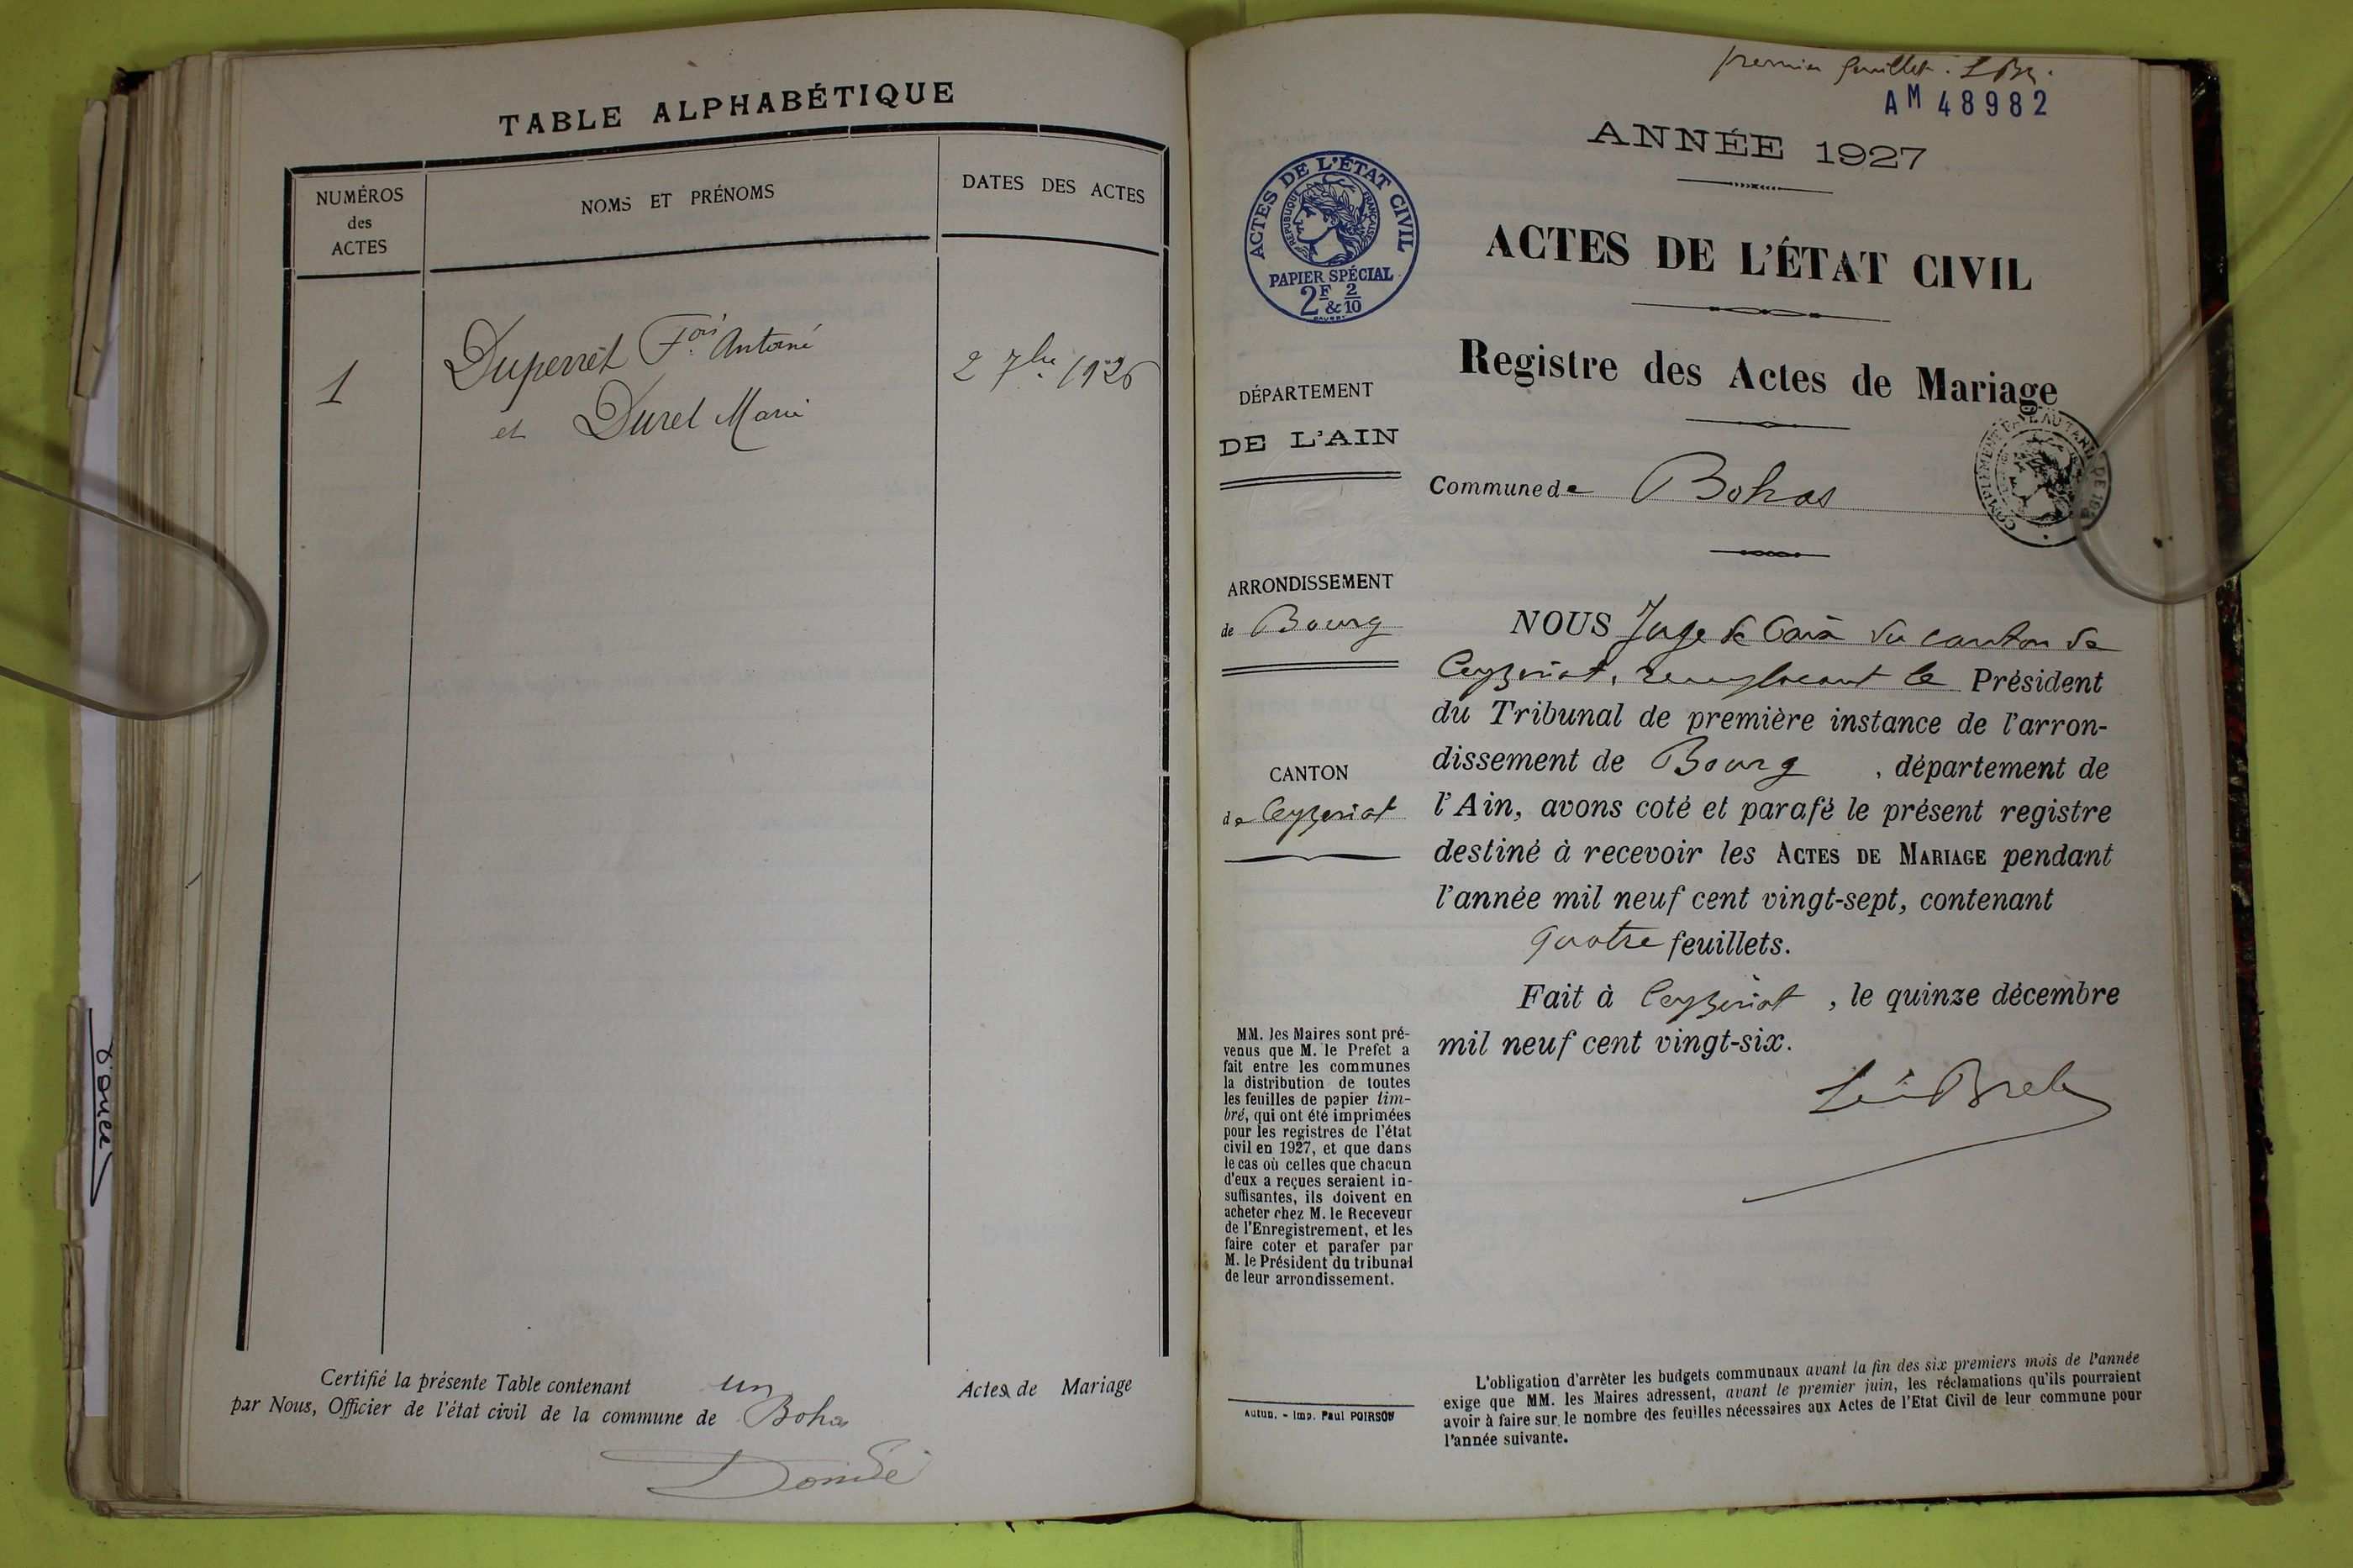 TABLE ALPHABÉTIQUE
NUMÉROS
des
ACTES
NOMS ET PRÉNOMS
DATES DES ACTES
1
Duperret Fois Antoine
et Duret Marie
2 7bre 1926
Certifié la présente Table contenant un Actes de Mariage
par Nous, Officier de l'état civil de la commune de Bohas
premier feuillet.
AM 48982
ANNÉE 1927
ACTES DE L'ÉTAT CIVIL
RÉPUBLIQUE FRANÇAISE
PAPIER SPÉCIAL
2F & 2/10
ACTES DE L'ÉTAT CIVIL
Registre des Actes de Mariage
DÉPARTEMENT
DE L'AIN
Commune de Bohas
ARRONDISSEMENT
de Bourg
CANTON
de Ceyzériat
NOUS Juge de Paix du canton de
Ceyzériat, remplacant le Président
du Tribunal de première instance de l'arron-
dissement de Bourg, département de
l'Ain, avons coté et parafé le présent registre
destiné à recevoir les ACTES DE MARIAGE pendant
l'année mil neuf cent vingt-sept, contenant
quatre feuillets.
Fait à Ceyzériat, le quinze décembre
mil neuf cent vingt-six.
MM. les Maires sont pré-
venus que M. le Prefet a
fait entre les communes
la distribution de toutes
les feuilles de papier tim-
bré, qui ont été imprimées
pour les registres de l'état
civil en 1927, et que dans
le cas où celles que chacun
d'eux a reçues seraient in-
suffisantes, ils doivent en
acheter chez M. le Receveur
de l'Enregistrement, et les
faire coter et parafer par
M. le Président du tribunal
de leur arrondissement.
Autun. - Imp. Paul POIRSON
L'obligation d'arrêter les budgets communaux avant la fin des six premiers mois de l'année
exige que MM. les Maires adressent, avant le premier juin, les réclamations qu'ils pourraient
avoir à faire sur le nombre des feuilles nécessaires aux Actes de l'Etat Civil de leur commune pour
l'année suivante.